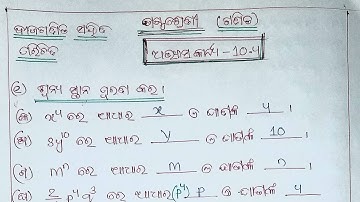 ବୀଜଗଣିତ ସହିତ ସପ୍ତମଶ୍ରେଣୀ (ଗଣିତ)
ପରିଚୟ ଅଭ୍ୟାସ କାର୍ଯ୍ୟ - 10.4
② ଶୂନ୍ୟ ସ୍ଥାନ ପୂରଣ କର।
(କ) x⁴ ରେ ଆଧାର x ଓ ଘାତାଙ୍କ 4 ।
(ଖ) 8y¹⁰ ରେ ଆଧାର y ଓ ଘାତାଙ୍କ 10 ।
(ଗ) mⁿ ରେ ଆଧାର m ଓ ଘାତାଙ୍କ n ।
(ଘ) 2 p⁴q³ ରେ ଆଧାର (p⁴) p ଓ ଘାତାଙ୍କ 4